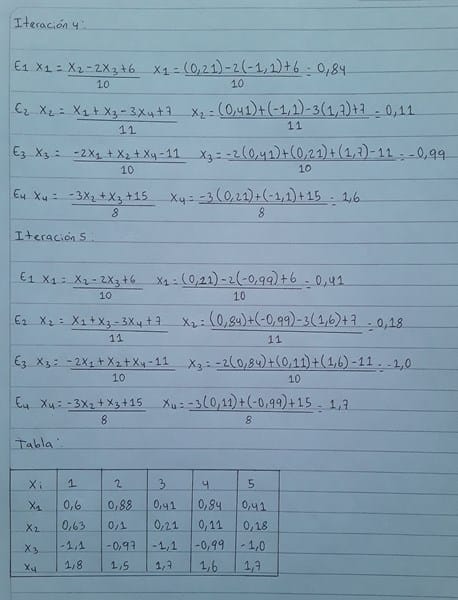 Iteración 4:
E1 X1 = X2 - 2X3 + 6 / 10   X1 = (0,21) - 2(-1,1) + 6 / 10 = 0,84
E2 X2 = X1 + X3 - 3X4 + 7 / 11   X2 = (0,41) + (-1,1) - 3(1,7) + 7 / 11 = 0,11
E3 X3 = -2X1 + X2 + X4 - 11 / 10   X3 = -2(0,41) + (0,21) + (1,7) - 11 / 10 = -0,99
E4 X4 = -3X2 + X3 + 15 / 8   X4 = -3(0,21) + (-1,1) + 15 / 8 = 1,6
Iteración 5:
E1 X1 = X2 - 2X3 + 6 / 10   X1 = (0,11) - 2(-0,99) + 6 / 10 = 0,41
E2 X2 = X1 + X3 - 3X4 + 7 / 11   X2 = (0,84) + (-0,99) - 3(1,6) + 7 / 11 = 0,18
E3 X3 = -2X1 + X2 + X4 - 11 / 10   X3 = -2(0,84) + (0,11) + (1,6) - 11 / 10 = -1,0
E4 X4 = -3X2 + X3 + 15 / 8   X4 = -3(0,11) + (-0,99) + 15 / 8 = 1,7
Tabla:
Xi 1 2 3 4 5
X1 0,6 0,88 0,41 0,84 0,41
X2 0,63 0,1 0,21 0,11 0,18
X3 -1,1 -0,97 -1,1 -0,99 -1,0
X4 1,8 1,5 1,7 1,6 1,7